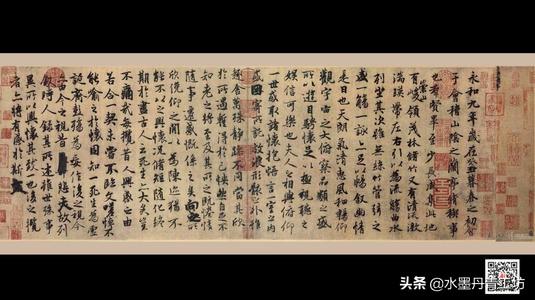 永和九年歲在癸丑暮春之初會
于會稽山陰之蘭亭脩禊事
也羣賢畢至少長咸集此地
有崇山峻領茂林脩竹又有清流激
湍暎帶左右引以為流觴曲水
列坐其次雖無絲竹管弦之
盛一觴一詠亦足以暢敘幽情
是日也天朗氣清惠風和暢仰
觀宇宙之大俯察品類之盛
所以遊目騁懷足以極視聽之
娛信可樂也夫人之相與俯仰
一世或取諸懷抱悟言一室之內
或因寄所託放浪形骸之外雖
趣舍萬殊靜躁不同當其欣
於所遇暫得於己快然自足不
知老之將至及其所之既惓情
隨事遷感慨係之矣向之所
欣俛仰之閒以為陳迹猶不
能不以之興懷況脩短隨化終
期於盡古人云死生亦大矣豈
不痛哉每攬昔人興感之由
若合一契未嘗不臨文嗟悼不
能喻之於懷固知一死生為虛
誕齊彭殤為妄作後之視今
亦由今之視昔悲夫故列
敘時人錄其所述雖世殊事
異所以興懷其致一也後之攬
者亦將有感於斯文
头条 @水墨丹青坊